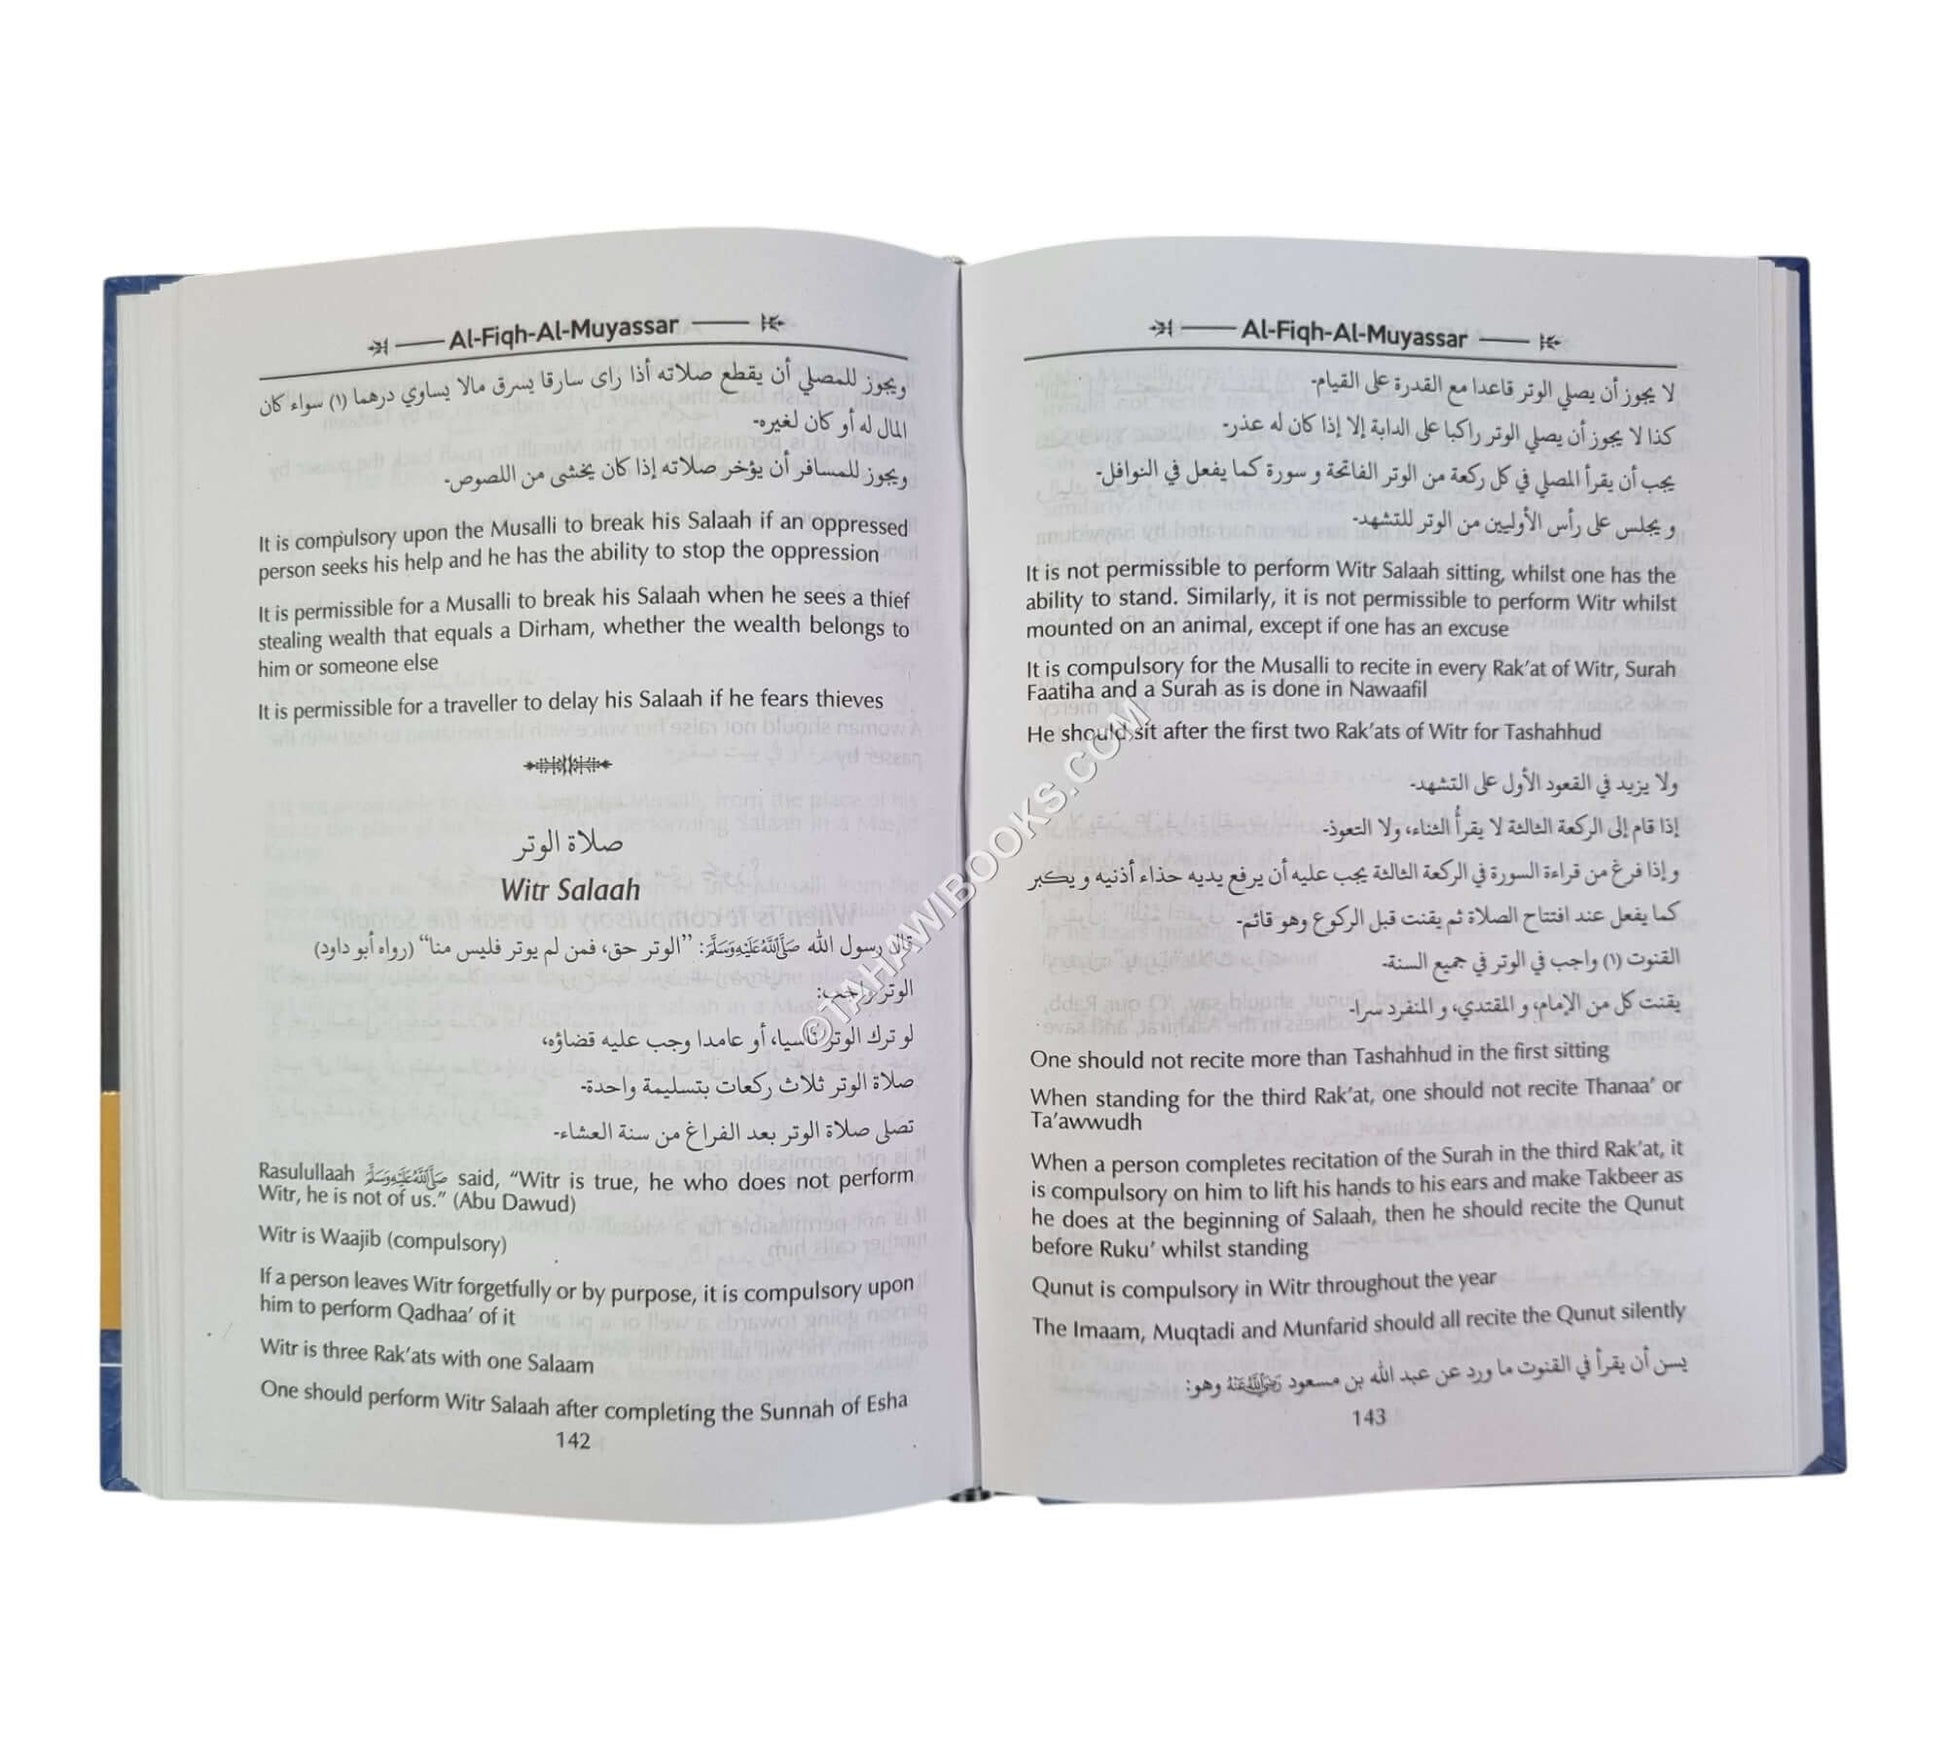 Al-Fiqh-Al-Muyassar
ويجوز للمصلي أن يقطع صلاته أذا راى سارقا يسرق مالا يساوي درهما (١) سواء كان
المال له أو كان لغيره-
ويجوز للمسافر أن يؤخر صلاته إذا كان يخشى من اللصوص-
It is compulsory upon the Musalli to break his Salaah if an oppressed
person seeks his help and he has the ability to stop the oppression
It is permissible for a Musalli to break his Salaah when he sees a thief
stealing wealth that equals a Dirham, whether the wealth belongs to
him or someone else
It is permissible for a traveller to delay his Salaah if he fears thieves
صلاة الوتر
Witr Salaah
قال رسول الله صَلَّى اللَّهُ عَلَيْهِ وَسَلَّمَ: ”الوتر حق، فمن لم يوتر فليس منا“ (رواه أبو داود)
الوتر واجب:
لو ترك الوتر ناسيا، أو عامدا وجب عليه قضاؤه،
صلاة الوتر ثلاث ركعات بتسليمة واحدة-
تصلى صلاة الوتر بعد الفراغ من سنة العشاء-
Rasulullaah صَلَّى اللَّهُ عَلَيْهِ وَسَلَّمَ said, “Witr is true, he who does not perform
Witr, he is not of us.” (Abu Dawud)
Witr is Waajib (compulsory)
If a person leaves Witr forgetfully or by purpose, it is compulsory upon
him to perform Qadhaa’ of it
Witr is three Rak’ats with one Salaam
One should perform Witr Salaah after completing the Sunnah of Esha
142
Al-Fiqh-Al-Muyassar
لا يجوز أن يصلي الوتر قاعدا مع القدرة على القيام-
كذا لا يجوز أن يصلي الوتر راكبا على الدابة إلا إذا كان له عذر-
يجب أن يقرأ المصلي في كل ركعة من الوتر الفاتحة و سورة كما يفعل في النوافل-
و يجلس على رأس الأوليين من الوتر للتشهد-
It is not permissible to perform Witr Salaah sitting, whilst one has the
ability to stand. Similarly, it is not permissible to perform Witr whilst
mounted on an animal, except if one has an excuse
It is compulsory for the Musalli to recite in every Rak’at of Witr, Surah
Faatiha and a Surah as is done in Nawaafil
He should sit after the first two Rak’ats of Witr for Tashahhud
ولا يزيد في القعود الأول على التشهد-
إذا قام إلى الركعة الثالثة لا يقرأُ الثناء، ولا التعوذ-
و إذا فرغ من قراءة السورة في الركعة الثالثة يجب عليه أن يرفع يديه حذاء أذنيه و يكبر
كما يفعل عند افتتاح الصلاة ثم يقنت قبل الركوع وهو قائم-
القنوت (١) واجب في الوتر في جميع السنة-
يقنت كل من الإمام، و المقتدي، و المنفرد سرا-
One should not recite more than Tashahhud in the first sitting
When standing for the third Rak’at, one should not recite Thanaa’ or
Ta’awwudh
When a person completes recitation of the Surah in the third Rak’at, it
is compulsory on him to lift his hands to his ears and make Takbeer as
he does at the beginning of Salaah, then he should recite the Qunut
before Ruku’ whilst standing
Qunut is compulsory in Witr throughout the year
The Imaam, Muqtadi and Munfarid should all recite the Qunut silently
يسن أن يقرأ في القنوت ما ورد عن عبد الله بن مسعود رَضِيَ اللَّهُ عَنْهُ وهو:
143
©TAHAWIBOOKS.COM